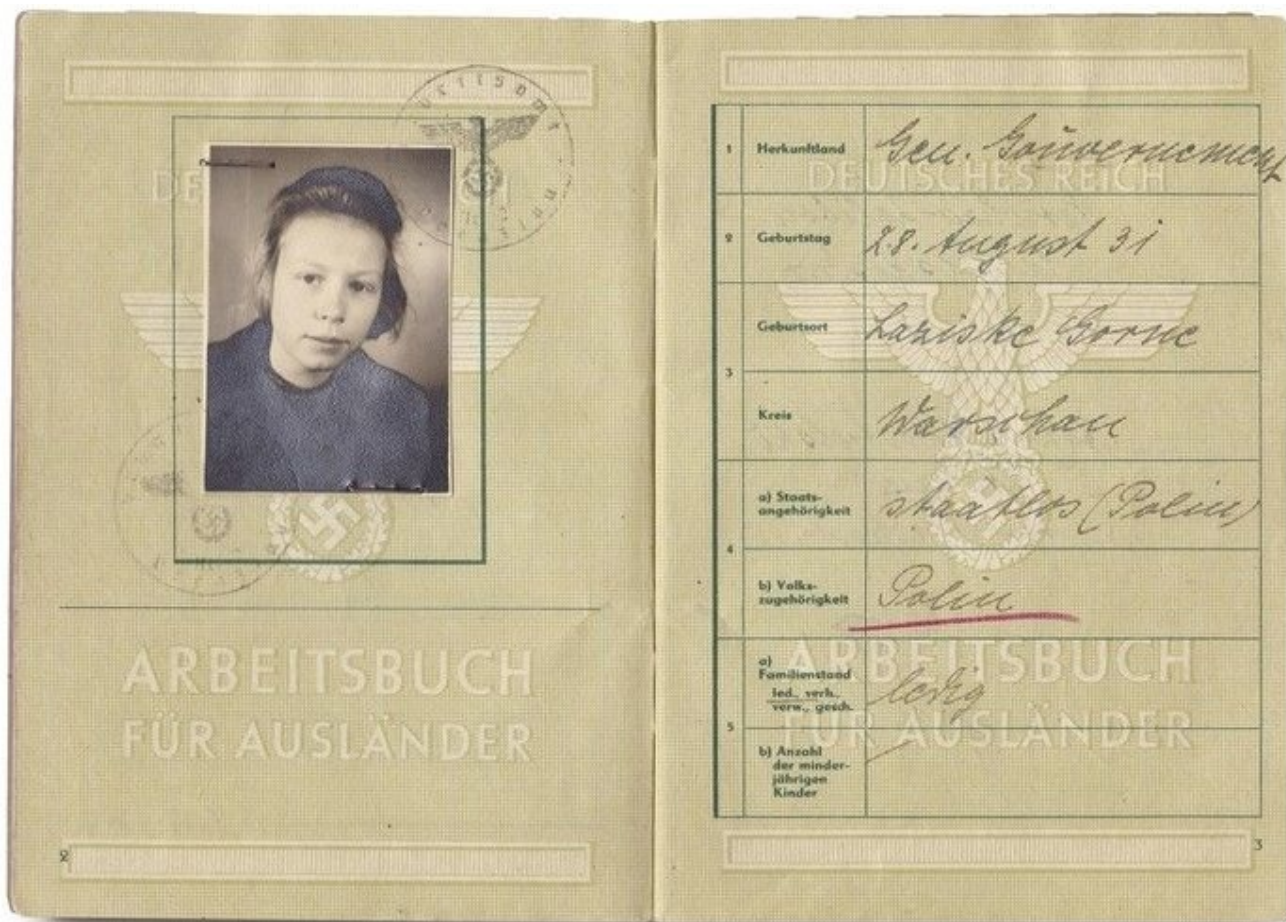 DEUTSCHES REICH
ARBEITSBUCH
FÜR AUSLÄNDER
2
DEUTSCHES REICH
1 Herkunftland Gen. Gouvernement
2 Geburtstag 28. August 31
3 Geburtsort Laziske Gorne
Kreis Warschau
4 a) Staats-
angehörigkeit staatlos (Polin)
b) Volks-
zugehörigkeit Polin
5 a)
Familienstand
led., verh.,
verw., gesch. ledig
b) Anzahl
der minder-
jährigen
Kinder
ARBEITSBUCH
FÜR AUSLÄNDER
3